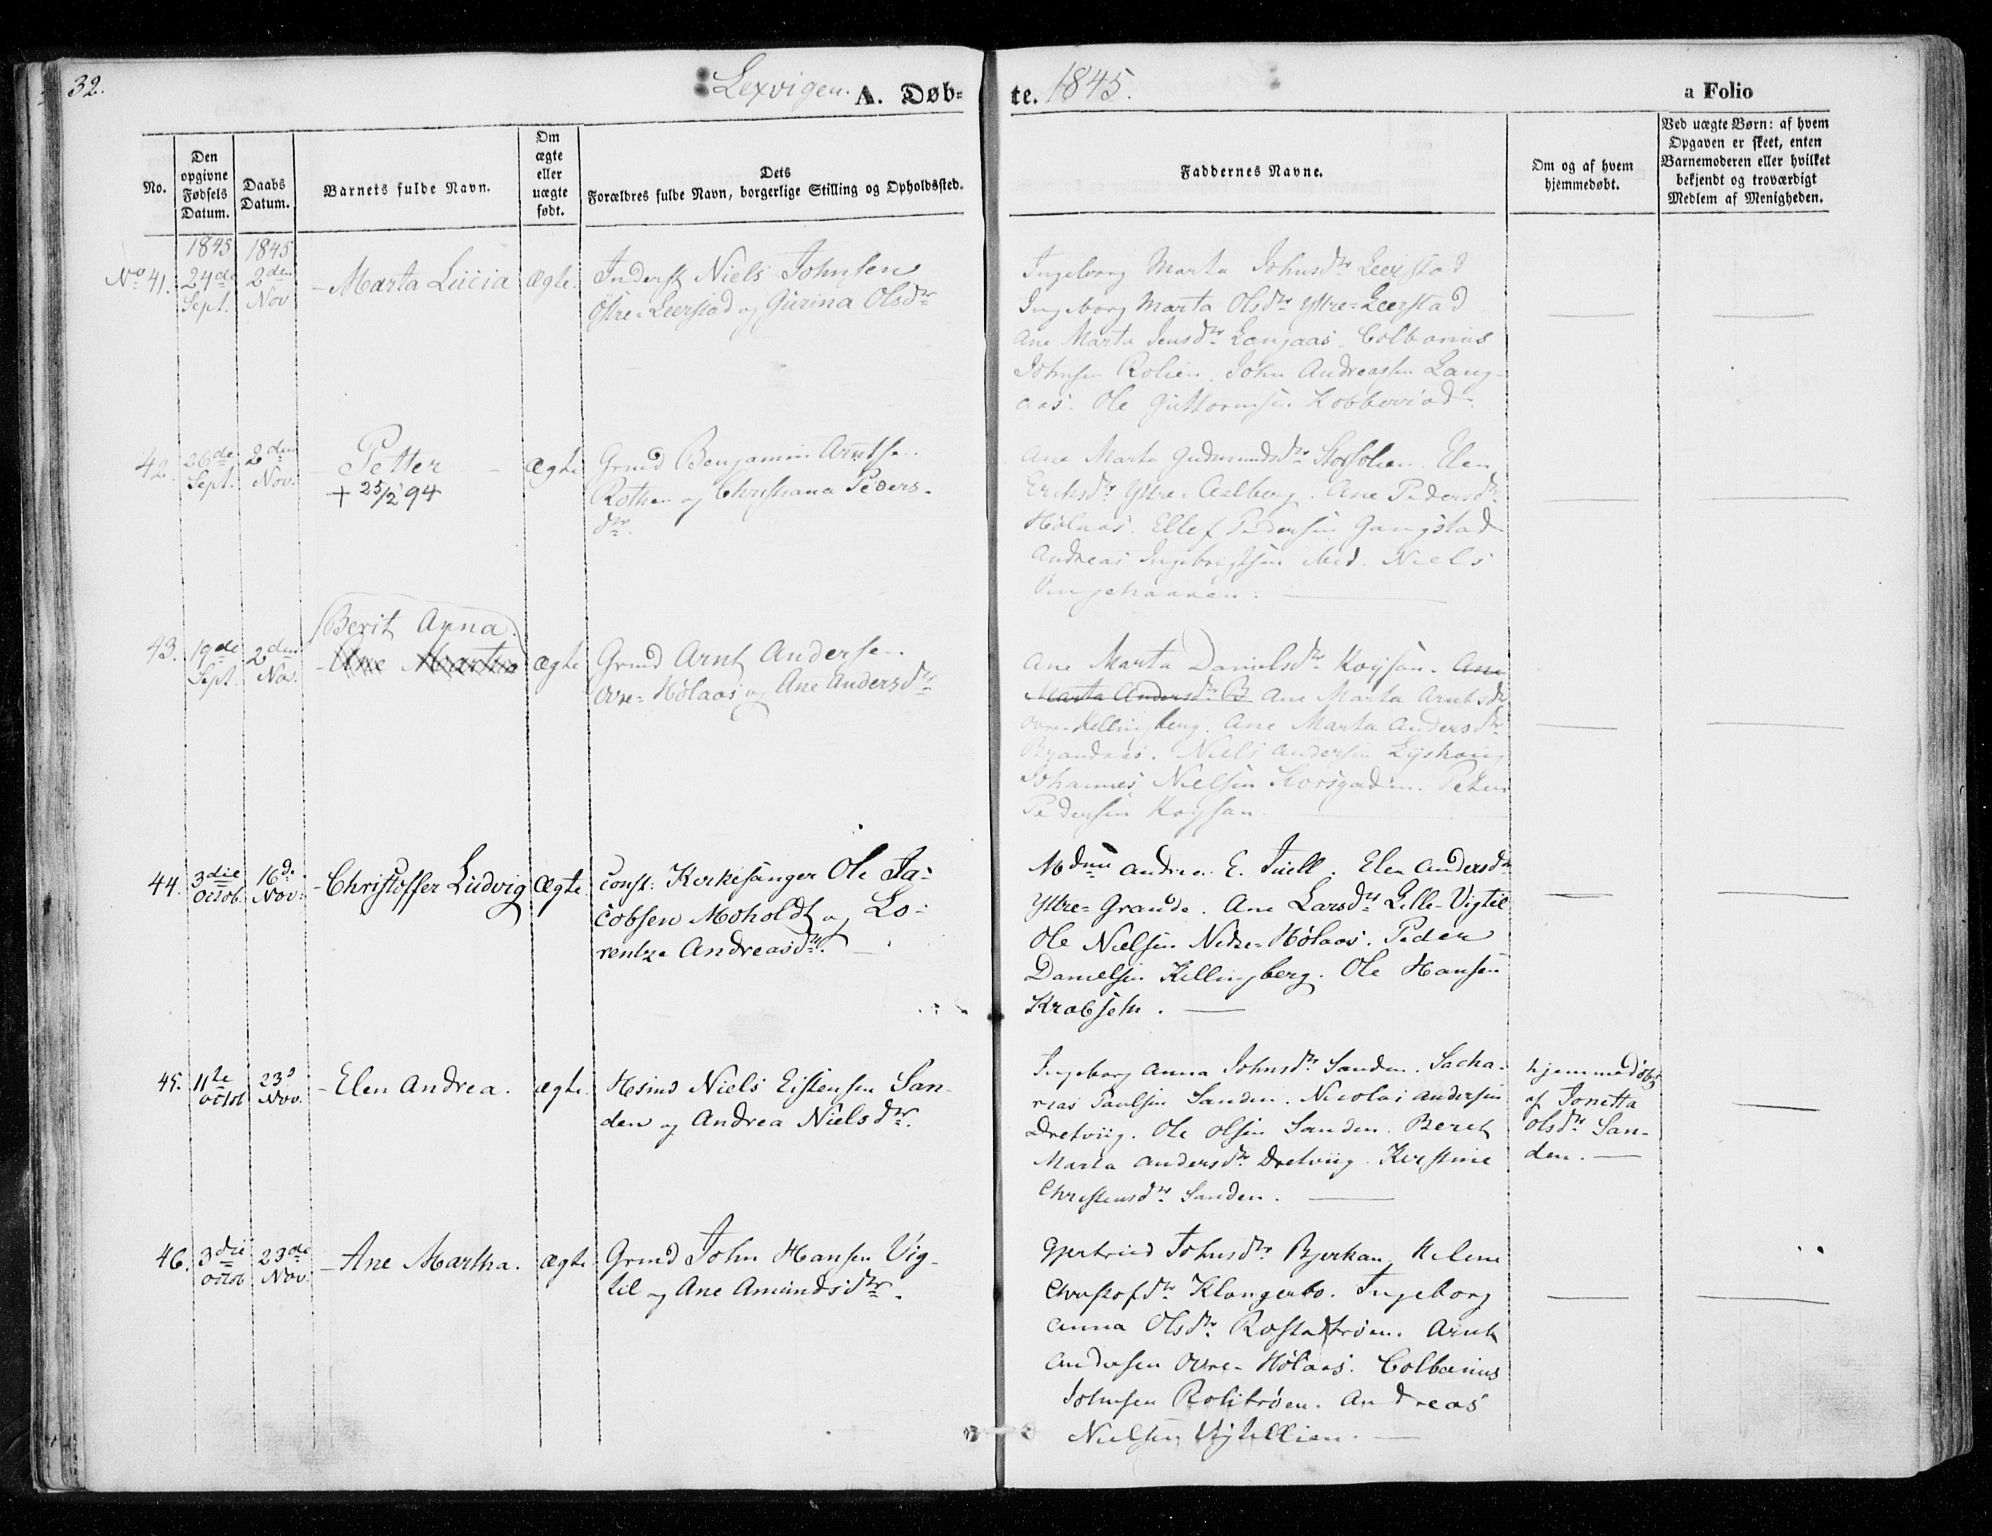 32.
Lexvigen. A. Døb=
te. 1845.
a Folio
No.
Den opgivne Fødsels Datum.
Daabs Datum.
Barnets fulde Navn.
Om ægte eller uægte født.
Dets Forældres fulde Navn, borgerlige Stilling og Opholdssted.
Faddernes Navne.
Om og af hvem hjemmedøbt.
Ved uægte Børn: af hvem Opgaven er skeet, enten Barnemoderen eller hvilket bekjendt og troværdigt Medlem af Menigheden.
1845 1845
No 41. 24de Sept. 2den Nov
Marta Lucia
Ægte.
Inderst Niels Johnsen
Östre-Leerstad og Gurina Olsdr
Ingeborg Marta Johnsdr Leerstad
Ingeborg Marta Olsdr Yttre-Leerstad
Ane Marta Jensdr Langaas. Colbanus
Johnsen Rolien. John Andreassen Lang-
aas. Ole Guttormsen
42. 26de Sept. 2den Nov.
Petter
+ 25/2 94
Ægte
Grmd Benjamin Arntsen
Rothen og Christiana Peders-
dr.
Ane Marta Gudmundsdr Elen
Eriksdr Yttre-Aalberg. Ane Pedersdr
Hölaas. Ellef Pedersen Gangstad
Andreas Ingebrigtsen ibid. Niels
43. 19de Sept. 2den Nov.
Berit Anna.
Ane Martha
Ægte
Grmd Arnt Andersen
Ovre-Hölaas og Ane Andersdr
Ane Marta Danielsdr Köysan. Ane
Marta Andersdr Ane Marta Arntsdr
Killingberg. Ane Marta Andersdr
Niels Andersen
Johannes Nielsen Korsgaden. Peter
Pedersen Köysan.
44. 3die Octob. 16de Nov.
Christoffer Ludvig
Ægte.
Const: Kirkesanger Ole Ja-
cobsen Moholdt og Lo-
rentze Andreasdr.
Mdme Andrea E. Juell. Elen Andersdr
Yttre-Grande. Ane Larsdr Lille-Vigtil
Ole Nielsen Nedre-Hölaas. Peder
Danielsen Killingberg. Ole Hansen
Krabseth.
45. 11te Octob 23d Nov.
Elen Andrea.
Ægte.
Hsmd Niels Eistensen San-
den og Andrea Nielsdr.
Ingeborg Anna Johnsdr Sanden. Sacha-
rias Paulsen Sanden. Nicolai Andersen
Dretviig. Ole Olsen Sanden. Beret
Marta Andersdr Dretviig. Kirstine
Christensdr Sanden.
hjemmedöbt
af Jonetta
Olsdr San-
den.
46. 3die Octob 23de Nov.
Ane Martha.
Ægte
Grmd John Hansen Vig-
til og Ane Amundsdr.
Gjertrud Johnsdr Bjerkan, Helene
Christofdr Klangerbo. Ingeborg
Anna Olsdr Rostadtrøen. Arnt
Andersen Ovre-Hölaas. Colbanus
Johnsen Rolitrøen. Andreas
Nielsen Vigtillien.